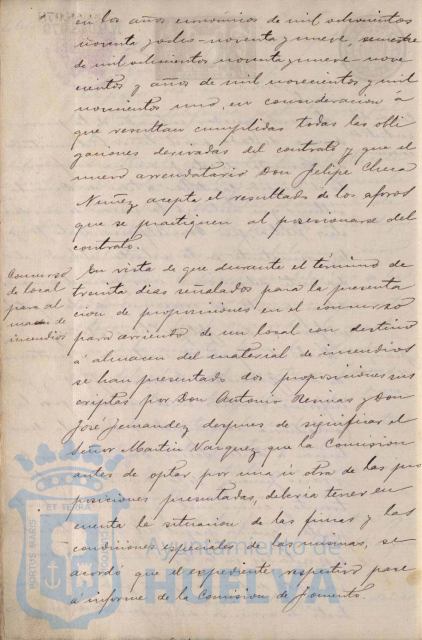 en los años económicos de mil ochocientos
noventa y ocho - noventa y nueve, semestre
de mil ochocientos noventa y nueve - nove
cientos y años de mil novecientos y mil
novecientos uno, en consideracion á
que resultan cumplidas todas las obli
gaciones derivadas del contrato y que el
nuevo arrendatario Don Felipe Checa
Nuñez acepta el resultado de los aforos
que se practiquen al posesionarse del
contrato.
Concurso
de local
para al
macen de
incendios
En vista de que durante el término de
treinta dias señalados para la presenta
cion de proposiciones en el concurso
para arriendo de un local con destino
á almacen del material de incendios
se han presentado dos proposiciones sus
criptas por Don Antonio y Don
José Fernandez, despues de significar el
Señor Martin Vazquez que la Comision
antes de optar por una ú otra de las pro
posiciones presentadas, deberia tener en
cuenta la situacion de las fincas y las
condiciones especiales de las mismas, se
acordó que el expediente respectivo pase
á informe de la Comision de Fomento.
PORTUS MARIS ET TERRAE CUSTODIA
Ayuntamiento de
HUELVA